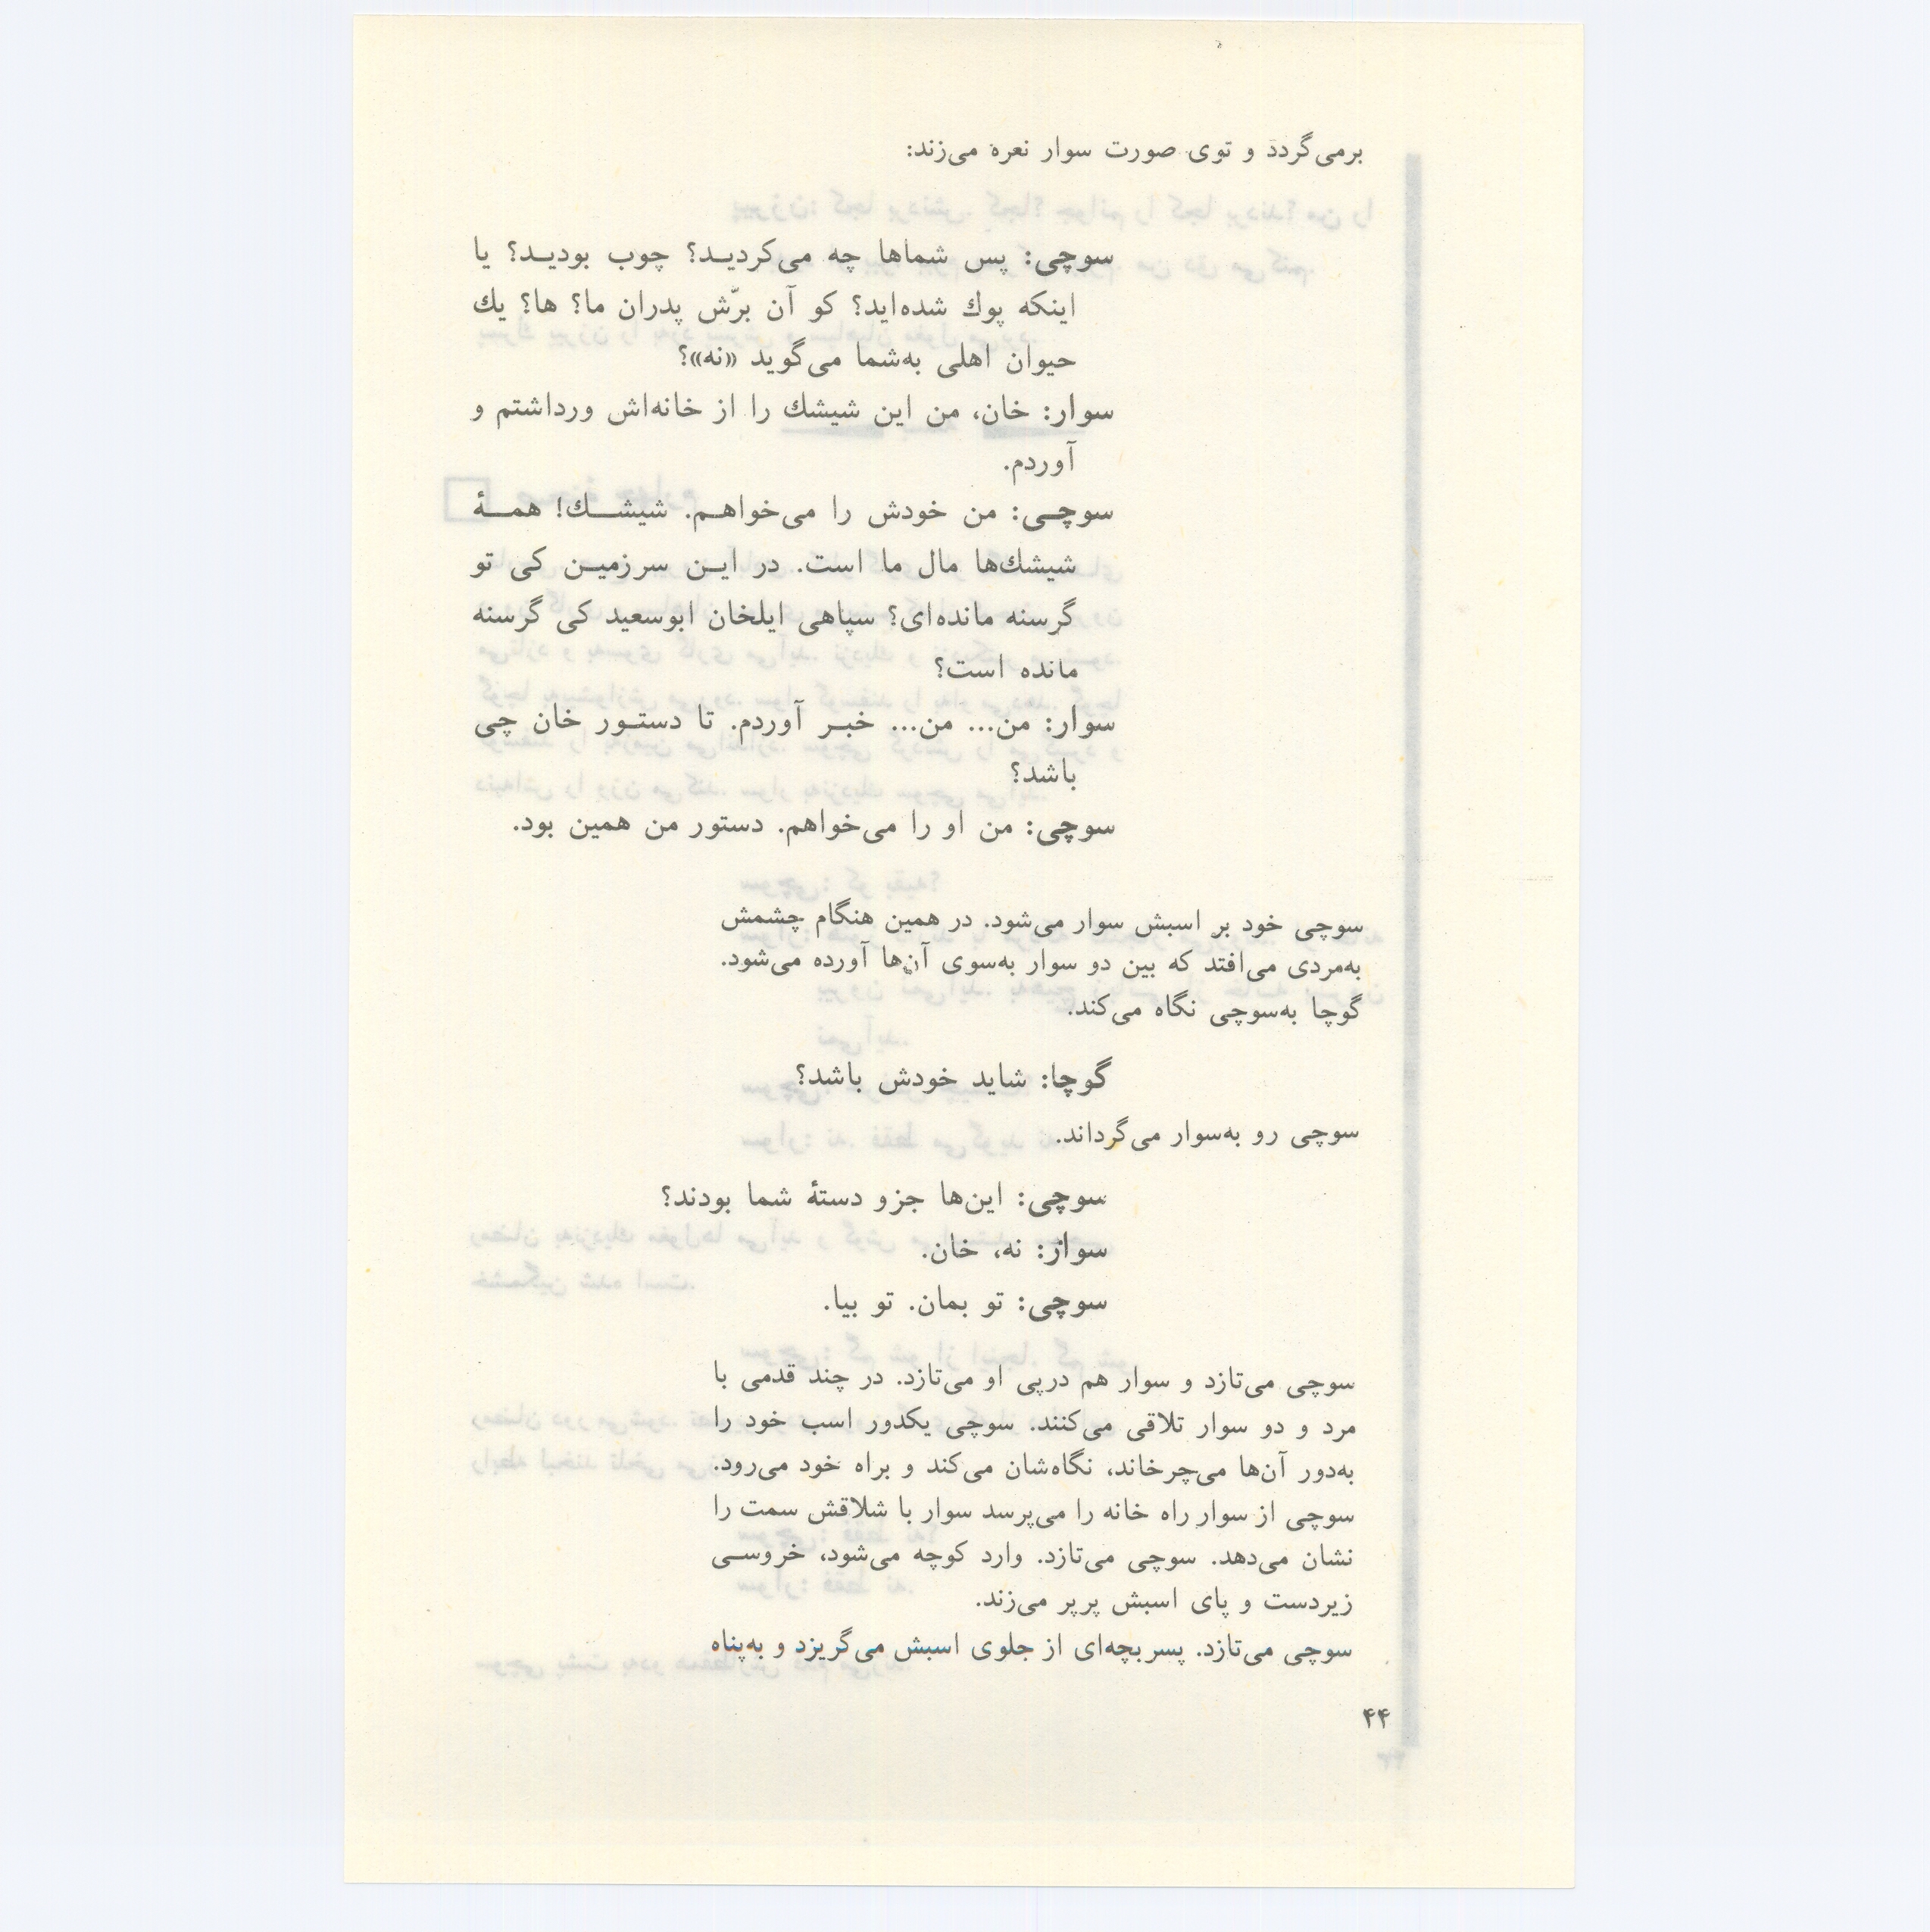 برمی‌گردد و توی صورت سوار نعره می‌زند:
سوچی: پس شماها چه می‌کردیـد؟ چوب بودیـد؟ یا
اینکه پوك شده‌اید؟ کو آن برّش پدران ما؟ ها؟ یك
حیوان اهلی به‌شما می‌گوید «نه»؟
سوار: خان، من این شیشك را از خانه‌اش ورداشتم و
آوردم.
سوچـی: من خودش را می‌خواهـم. شیشـــك! همــۀ
شیشك‌ها مال ما است. در ایـن سرزمیـن کی تو
گرسنه مانده‌ای؟ سپاهی ایلخان ابوسعید کی گرسنه
مانده است؟
سوار: من... من... خبـر آوردم. تا دستـور خان چی
باشد؟
سوچی: من او را می‌خواهم. دستور من همین بود.
سوچی خود بر اسبش سوار می‌شود. در همین هنگام چشمش
به‌مردی می‌افتد که بین دو سوار به‌سوی آن‌ها آورده می‌شود.
گوچا به‌سوچی نگاه می‌کند.
گوچا: شاید خودش باشد؟
سوچی رو به‌سوار می‌گرداند.
سوچی: این‌ها جزو دستۀ شما بودند؟
سوار: نه، خان.
سوچی: تو بمان. تو بیا.
سوچی می‌تازد و سوار هم درپی او می‌تازد. در چند قدمی با
مرد و دو سوار تلاقی می‌کنند. سوچی یکدور اسب خود را
به‌دور آن‌ها می‌چرخاند، نگاه‌شان می‌کند و براه خود می‌رود.
سوچی از سوار راه خانه را می‌پرسد سوار با شلاقش سمت را
نشان می‌دهد. سوچی می‌تازد. وارد کوچه می‌شود، خروسـی
زیردست و پای اسبش پرپر می‌زند.
سوچی می‌تازد. پسربچه‌ای از جلوی اسبش می‌گریزد و به‌پناه
۴۴